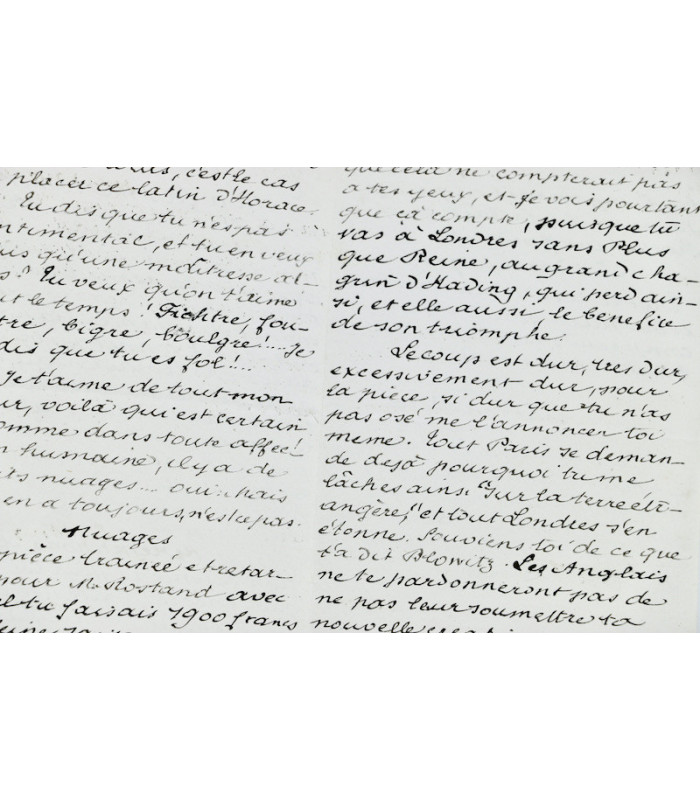 c'est le cas
placer ce latin d'Horace.
Tu dis que tu n'es pas
ntimental, et tu en veux
qu'une maîtresse al-
Tu veux qu'on t'aime
ut le temps! Fichtre, fou-
tre, bigre, boulgre!.... Je
dis que tu es fol!...
Je t'aime de tout mon
ur, voilà qui est certain
omme dans toute affec!
n humaine, il y a de
its nuages.... oui... mais
en a toujours, n'est ce pas.
Nuages
pièce trainée et retar-
pour M. Rostand avec
tu faisais 1900 francs
que cela ne compterait pas
a tes yeux, et je vois pourtant
que çà compte, puisque tu
vas à Londres sans Plus
que Reine, au grand cha-
grin d'Hading, qui perd ain-
si, et elle aussi le benefice
de son triomphe.
Le coup est dur, tres dur,
excessivement dur, pour
la pièce, si dur que tu n'as
pas osé me l'annoncer toi
meme. Tout Paris se deman-
de dejà pourquoi tu me
lâches ainsi "sur la terre étr-
angère," et tout Londres s'en
étonne. Souviens toi de ce que
t'a dit Blowitz. Les Anglais
ne te pardonneront pas de
ne pas leur soumettre ta
nouvelle